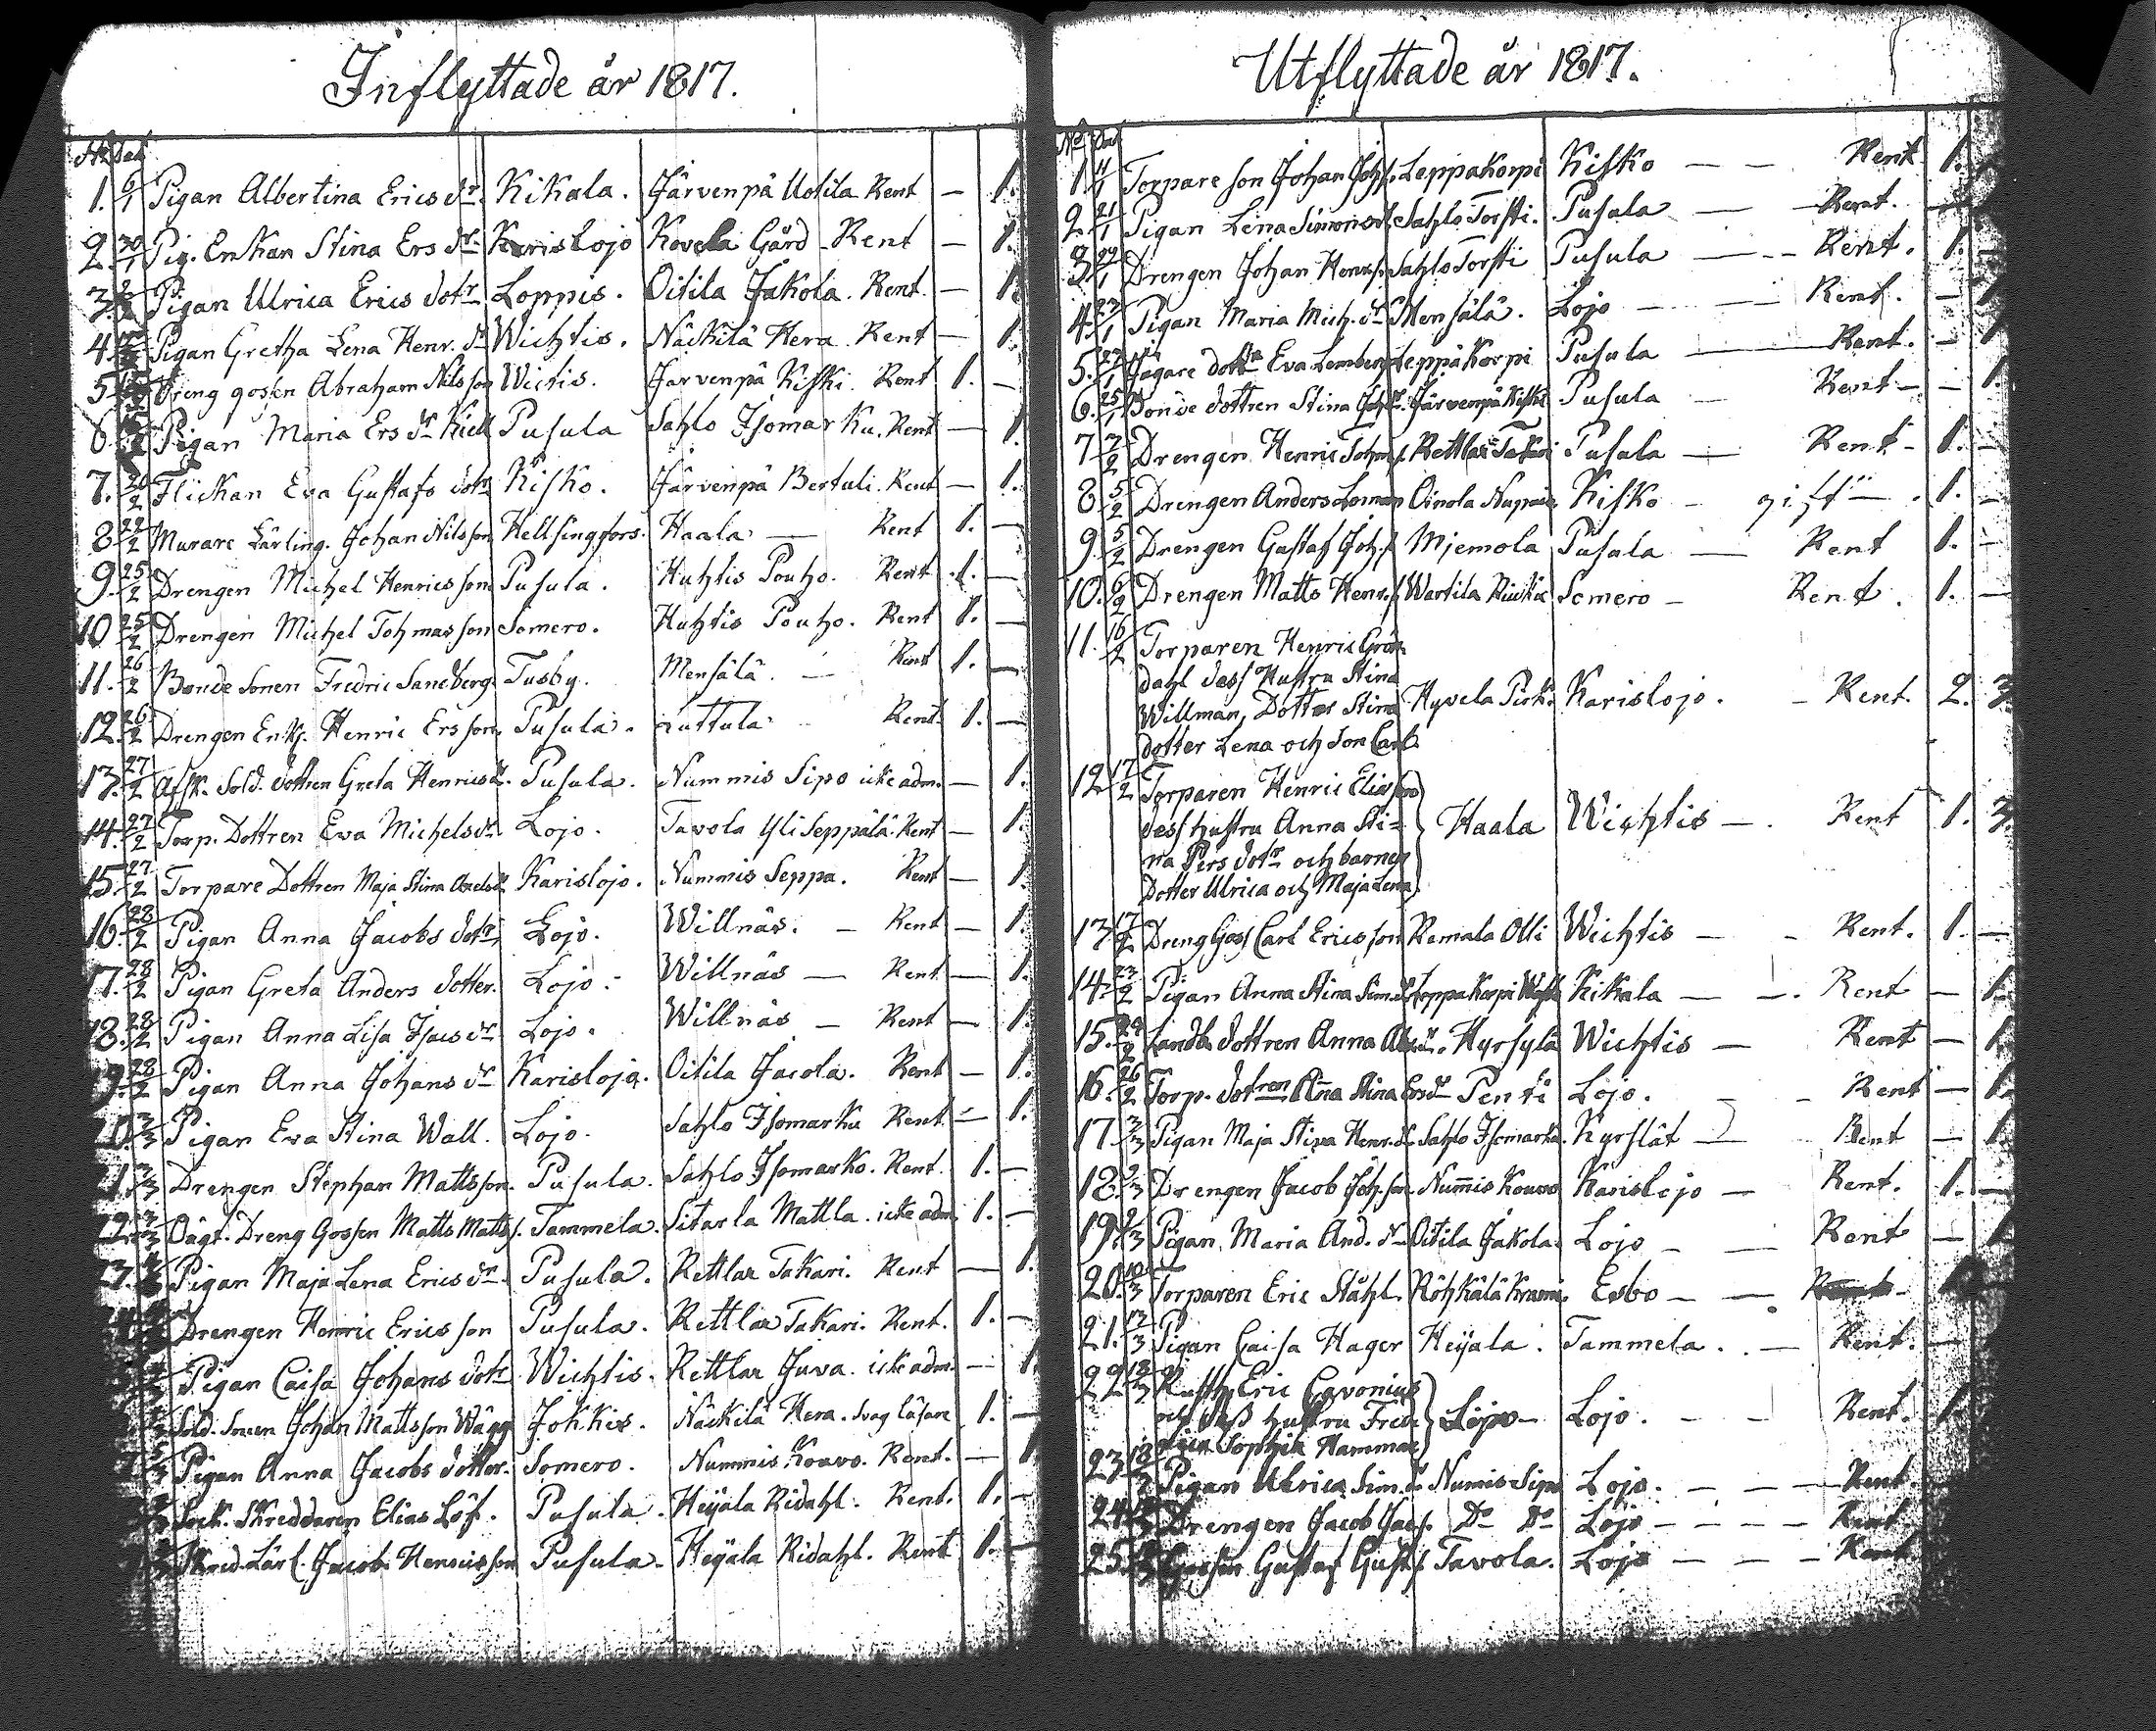 Inflyttade år 1817.
No Dat
1. 6/1 Pigan Albertina Erics dr. Kikala. Järvenpä Uotila Rent — 1.
2. 30/1 Pig. Enkan Stina Ers dr Karislojo Kovela Gård - Rent — 1.
3. Pigan Ulrica Erics dotr Loppis. Oitila Jakola. Rent. — 1.
4. Pigan Gretha Lena Henr. dr Wichtis. Näckilä Hera. Rent — 1.
5. Dreng gossen Abraham Nilsson Wictis. Jarvenpä Kiski. Rent 1. —
6. Pigan Maria Ers dr Pusula Sahlo Isomarku. Rent — 1.
7. 20/2 Flickan Eva Gustafs dotr Kisko. Järvenpä Bertuli. Rent — 1.
8. 22/2 Murare Lärling. Johan Nilsson Hellsingfors. Haala — Rent 1. —
9. 25/2 Drengen Michel Henricsson Pusula. Huhtis Pouho. Rent 1. —
10 25/2 Drengen Michel Tohmasson Somero. Huhtis Pouho. Rent 1. —
11. 26/2 Bonde Sonen Fredric Sandberg. Tusby. Mensälä. — Rent 1. —
12. 26/2 Drengen Enkl. Henric Ersson, Pusula. Luttula Rent. 1. —
13. 27/2 Afsk. Sold. dottren Greta Henricsdr. Pusula. Nummis Sipo icke adm. — 1.
14. 27/2 Torp. Dottren Eva Michelsdr. Lojo. Tavola Yli Seppälä. Rent — 1.
15. 27/2 Torpare Dottren Maja Stina Karislojo. Nummis Seppa. Rent — 1.
16. 28/2 Pigan Anna Jacobs dotr, Lojo. Willnäs. — Rent — 1.
17. 28/2 Pigan Greta Anders dotter. Lojo. Willnäs — Rent — 1.
18. 28/2 Pigan Anna Lisa Isacs dr Lojo. Willnäs — Rent — 1.
19. 28/2 Pigan Anna Johans dr Karislojo. Oitila Jacola. Rent — 1.
3/3 Pigan Eva Stina Wall. Lojo. Sahlo Isomarku Rent. — 1.
3/3 Drengen Stephan Mattsson. Pusula. Sahlo Isomarko. Rent. 1. —
3/3 Oägt. Dreng Gossen Matts Matts. Tammela. Sitarla Mattla. icke adm. 1. —
Pigan Maja Lena Erics dr. Pusula. Rettlax Takari. Rent — 1.
Drengen Henric Ericsson Pusula. Rettlax Takari. Rent. 1. —
Pigan Caisa Johans dotr Wichtis. Rettlax Juva. icke adm. — 1.
Sold. Sonen Johan Mattsson Wägg Jokkis. Näckilä Hera. svag läsare 1. —
Pigan Anna Jacobs dotter. Somero. Nummis Kouvo. Rent. — 1
Sock. Skreddaren Elias Löf. Pusula. Heijala Ridahl. Rent. 1. —
Skred. Lärl. Jacob Henricsson Pusula. Heijala Ridahl. Rent 1. —
Utflyttade år 1817.
No Dat
1. 11/1 Torpare son Johan Joh. s. Leppäkorpi Kisko — — Rent. 1.
2. 21/1 Pigan Lena Simonsdr Sahlo Torsti. Pusula — Rent. —
3. 22/1 Drengen Johan Henr. s. Sahlo Torsti Pusula — Rent. 1. —
4. 23/1 Pigan Maria Mich. dr Mensälä. Lojo — Rent. — 1
5. 23/1 Jägare dottr Eva Lemberg Leppäkorpi Pusula — Rent. — 1
6. 25/1 Bonde dottren Stina Joh. dr. Järvenpä Kiski Pusula — Rent — — 1.
7 2/2 Drengen Henric Tohm. s. Rettlax Takari Pusula — Rent — 1. —
8 5/2 Drengen Anders Loman Oinola Kisko — gift — 1. —
9. 5/2 Drengen Gustaf Joh. s. Mjemola Pusula — Rent 1. —
10. Drengen Matts Henr. s. Wartila Somero — Rent. 1. —
11. 16/2 Torparen Henric Grön
dahl dess Hustru Stina
Willman, Dotter Stina Hyvela Pirk. Karislojo. — Rent. 2. 3.
dotter Lena och Son Carl.
12 17/2 Torparen Henric Elisson
dess hustru Anna Sti= Haala Wichtis — Rent 1. 3.
na Pers dotr och barnen
Dotter Ulrica och Maja Lena
13 17/2 Dreng Goss Carl Ericsson Remala Olli Wichtis — — Rent. 1. —
14. 23/2 Pigan Anna Stina Sim. dr Leppäkorpi Kikala — — Rent — 1.
15. Landb. dottren Anna Hyrsylä Wichtis — Rent — 1.
16. 26/2 Torp. dotren Anna Stina Ersdr Penti Lojo. — — Rent — 1.
17. 3/3 Pigan Maja Stina Henr. dr Sahlo Isomarku. Kyrslät — Rent — 1.
18. 9/3 Drengen Jacob Joh. son Nummis Kouvo Karislojo — Rent. 1. —
19. 9/3 Pigan Maria And. dr Oitila Jakola. Lojo — — Rent — 1
20. 10/3 Torparen Eric Ståhl. Röhkälä Esbo — —
21. 17/3 Pigan Caisa Hager Heijala. Tammela. — Rent. —
22 18/3 Eric Cavonius
och dess hustru Fred= Lojo — Lojo. — — Rent. 1.
Sophia Hammar
23 18/3 Pigan Ulrica Sim. dr Nummis Sipo Lojo. — — — Rent.
24 Drengen Jacob Jacs. Do Do Lojo — — — Rent
25 Gossen Gustaf Gusts. Tavola. Lojo — — — Rent